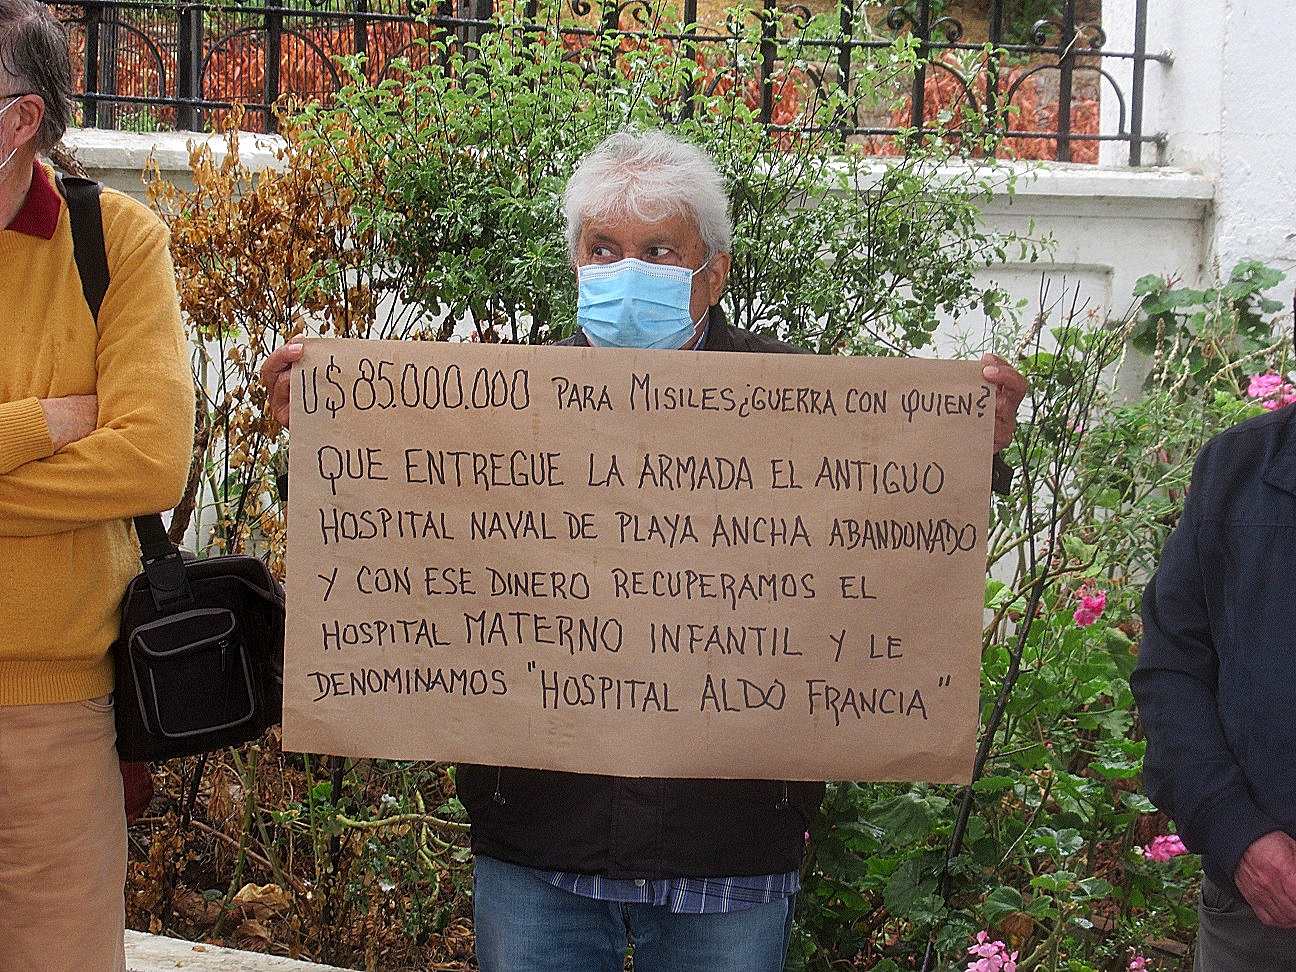 U$ 85.000.000 PARA MISILES ¿GUERRA CON QUIEN?
QUE ENTREGUE LA ARMADA EL ANTIGUO
HOSPITAL NAVAL DE PLAYA ANCHA ABANDONADO
Y CON ESE DINERO RECUPERAMOS EL
HOSPITAL MATERNO INFANTIL Y LE
DENOMINAMOS "HOSPITAL ALDO FRANCIA"